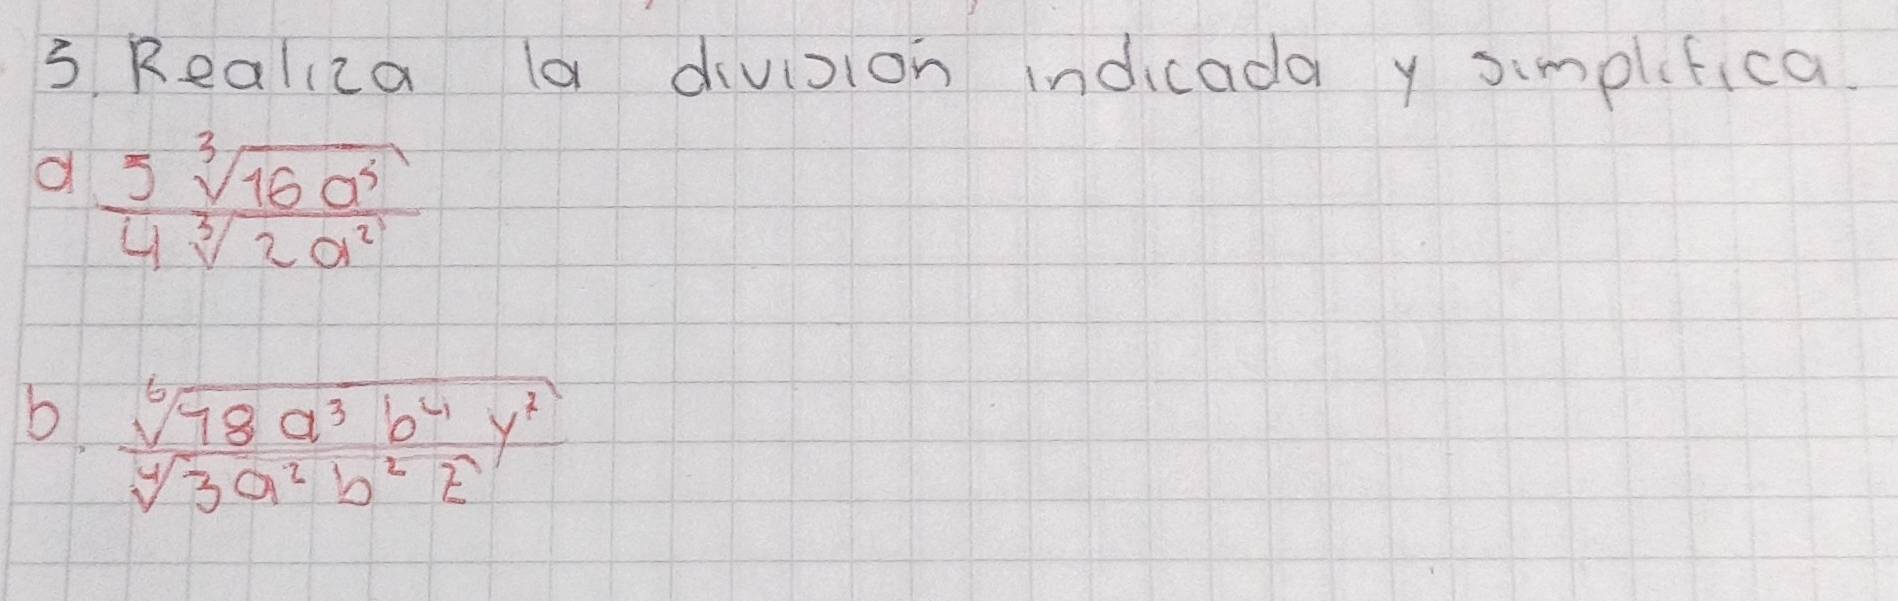 3. Realiza la división indicada y simplifica.
a 5 ∛16 a⁵ / 4 ∛2 a²
b. ⁶√18 a³ b⁴ y⁷ / ⁴√3 a² b² z